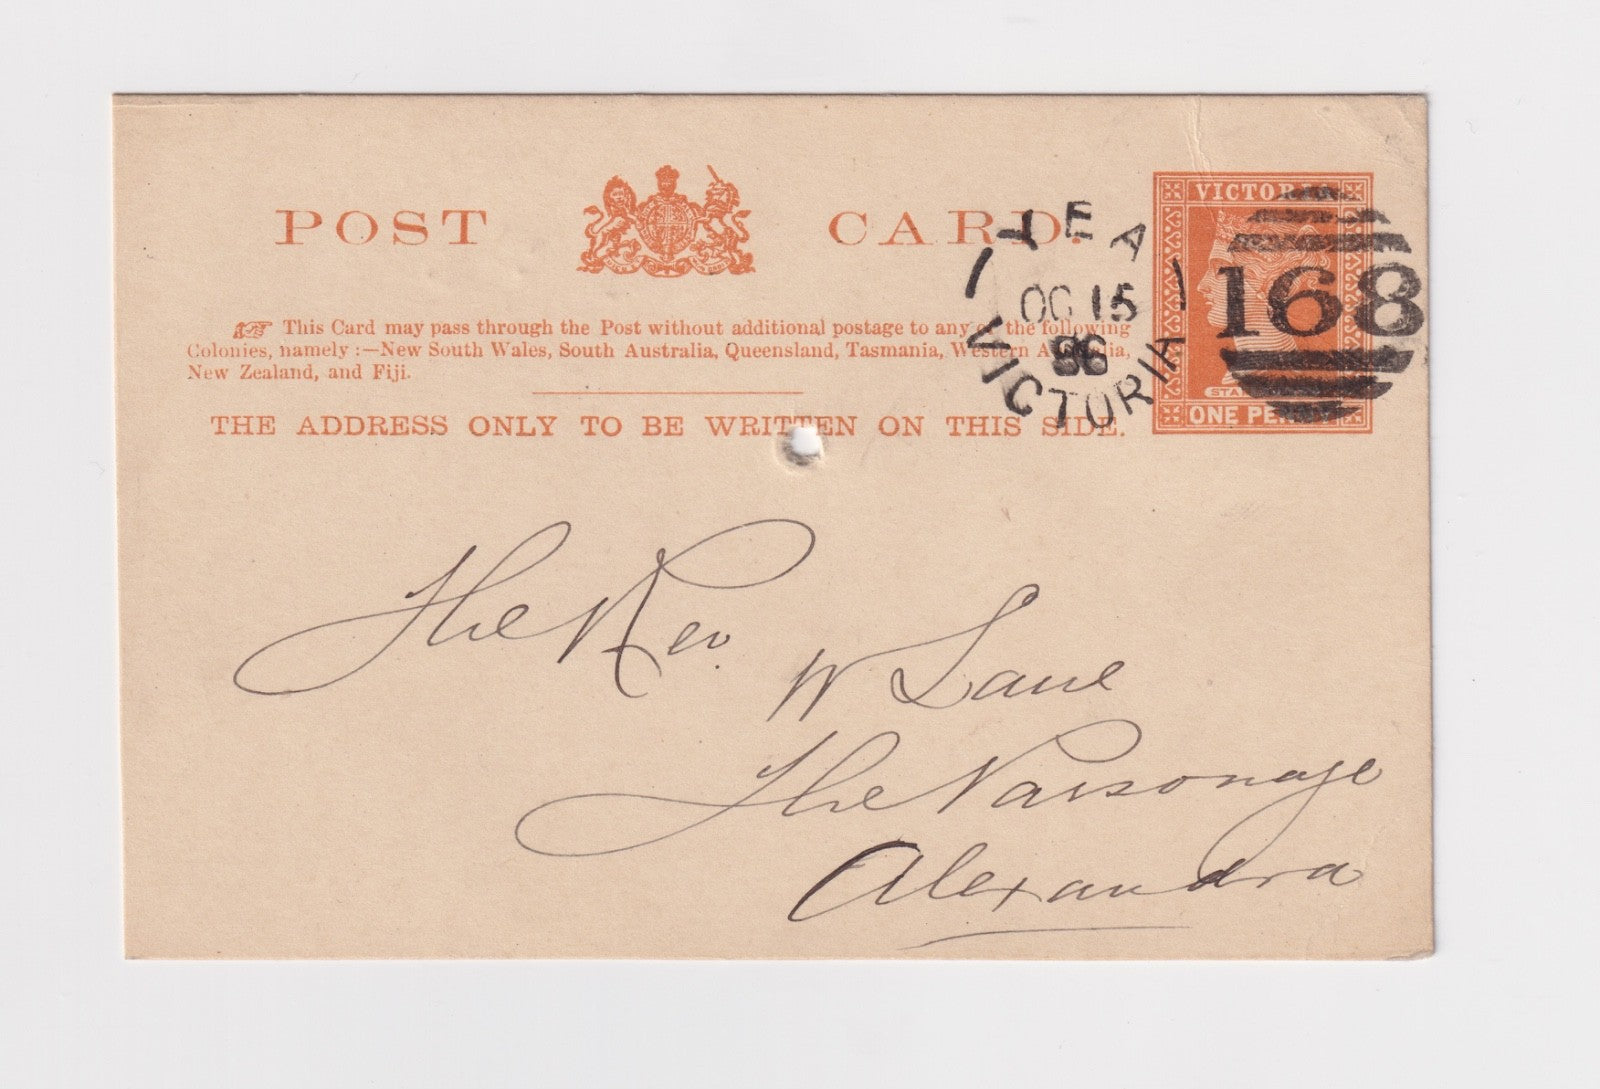 POST CARD.
☞ This Card may pass through the Post without additional postage to any of the following
Colonies, namely :—New South Wales, South Australia, Queensland, Tasmania, Western Australia,
New Zealand, and Fiji.
THE ADDRESS ONLY TO BE WRITTEN ON THIS SIDE.
YEA
OC 15
86
VICTORIA
168
VICTORIA
STAMP
ONE PENNY
The Rev.
W Lane
The Parsonage
Alexandra